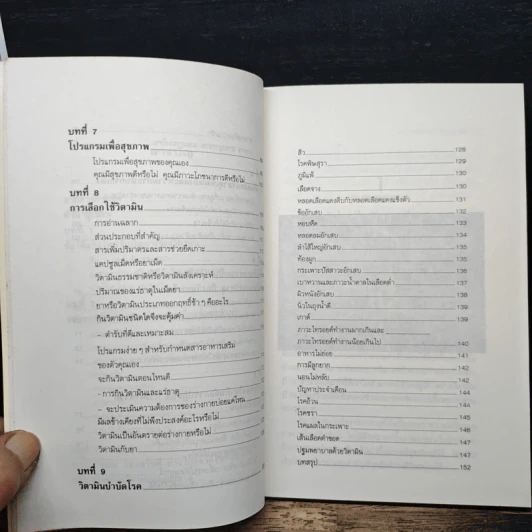 บทที่ 7
โปรแกรมเพื่อสุขภาพ
โปรแกรมเพื่อสุขภาพของคุณเอง
คุณมีสุขภาพดีหรือไม่ คุณมีภาวะโภชนาการดีหรือไม่
บทที่ 8
การเลือกใช้วิตามิน
การอ่านฉลาก
ส่วนประกอบที่สำคัญ
สารเพิ่มปริมาตรและสารช่วยยึดเกาะ
แคปซูลเม็ดหรือยาเม็ด
วิตามินธรรมชาติหรือวิตามินสังเคราะห์
ปริมาณของแร่ธาตุในเม็ดยา
ยาหรือวิตามินประเภทออกฤทธิ์ช้า ๆ คืออะไร
กินวิตามินชนิดใดจึงจะคุ้มค่า
- ตำรับที่ดีและเหมาะสม
โปรแกรมง่าย ๆ สำหรับกำหนดสารอาหารเสริม
ของตัวคุณเอง
จะกินวิตามินตอนไหนดี
- การกินวิตามินและแร่ธาตุ
- จะประเมินความต้องการของร่างกายบ่อยแค่ไหน
มีผลข้างเคียงที่ไม่พึงประสงค์อะไรหรือไม่
วิตามินเป็นอันตรายต่อร่างกายหรือไม่
วิตามินกับยา
บทที่ 9
วิตามินบำบัดโรค
สิว 128
โรคพิษสุรา 129
ภูมิแพ้ 130
เลือดจาง 130
หลอดเลือดแดงตีบกับหลอดเลือดแดงแข็งตัว 131
ข้ออักเสบ 132
หอบหืด 133
หลอดลมอักเสบ 134
ลำไส้ใหญ่อักเสบ 135
ท้องผูก 136
กระเพาะปัสสาวะอักเสบ 136
เบาหวานและภาวะน้ำตาลในเลือดต่ำ 137
ผิวหนังอักเสบ 138
นิ่วในถุงน้ำดี 139
เกาต์ 139
ภาวะไทรอยด์ทำงานมากเกินและ
ภาวะไทรอยด์ทำงานน้อยเกินไป 140
อาหารไม่ย่อย 141
การมีลูกยาก 142
นอนไม่หลับ 142
ปัญหาประจำเดือน 144
โรคอ้วน 144
โรคชรา 145
โรคแผลในกระเพาะ 146
เส้นเลือดดำขอด 147
ปฐมพยาบาลด้วยวิตามิน 147
บทสรุป 152